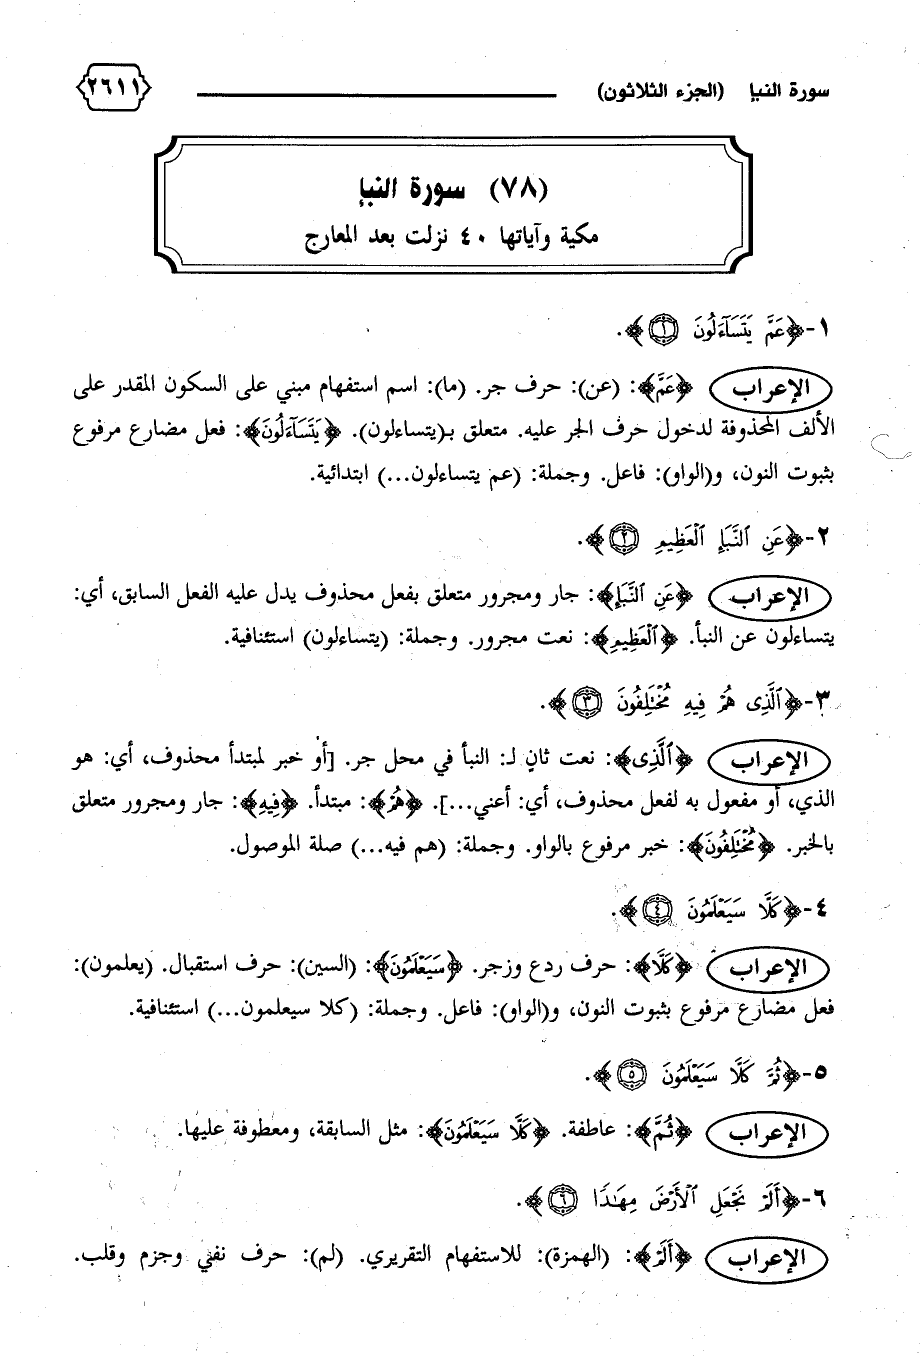 سورة النبإ (الجزء الثلاثون)
٢٦١١
(٧٨) سورة النبإ
مكية وآياتها ٤٠ نزلت بعد المعارج
١-﴿عَمَّ يَتَسَآءَلُونَ ١﴾.
الإعراب ﴿عَمَّ﴾: (عن): حرف جر. (ما): اسم استفهام مبني على السكون المقدر على
الألف المحذوفة لدخول حرف الجر عليه. متعلق بـ(يتساءلون). ﴿يَتَسَآءَلُونَ﴾: فعل مضارع مرفوع
بثبوت النون، و(الواو): فاعل. وجملة: (عم يتساءلون...) ابتدائية.
٢-﴿عَنِ ٱلنَّبَإِ ٱلْعَظِيمِ ٢﴾.
الإعراب ﴿عَنِ ٱلنَّبَإِ﴾: جار ومجرور متعلق بفعل محذوف يدل عليه الفعل السابق، أي:
يتساءلون عن النبأ. ﴿ٱلْعَظِيمِ﴾: نعت مجرور. وجملة: (يتساءلون) استئنافية.
٣-﴿ٱلَّذِى هُمْ فِيهِ مُخْتَلِفُونَ ٣﴾.
الإعراب ﴿ٱلَّذِى﴾: نعت ثانٍ لـ: النبأ في محل جر. [أو خبر لمبتدأ محذوف، أي: هو
الذي، أو مفعول به لفعل محذوف، أي: أعني...]. ﴿هُمْ﴾: مبتدأ. ﴿فِيهِ﴾: جار ومجرور متعلق
بالخبر. ﴿مُخْتَلِفُونَ﴾: خبر مرفوع بالواو. وجملة: (هم فيه...) صلة الموصول.
٤-﴿كَلَّا سَيَعْلَمُونَ ٤﴾.
الإعراب ﴿كَلَّا﴾: حرف ردع وزجر. ﴿سَيَعْلَمُونَ﴾: (السين): حرف استقبال. (يعلمون):
فعل مضارع مرفوع بثبوت النون، و(الواو): فاعل. وجملة: (كلا سيعلمون...) استئنافية.
٥-﴿ثُمَّ كَلَّا سَيَعْلَمُونَ ٥﴾.
الإعراب ﴿ثُمَّ﴾: عاطفة. ﴿كَلَّا سَيَعْلَمُونَ﴾: مثل السابقة، ومعطوفة عليها.
٦-﴿أَلَمْ نَجْعَلِ ٱلْأَرْضَ مِهَٰدًا ٦﴾.
الإعراب ﴿أَلَمْ﴾: (الهمزة): للاستفهام التقريري. (لم): حرف نفي وجزم وقلب.